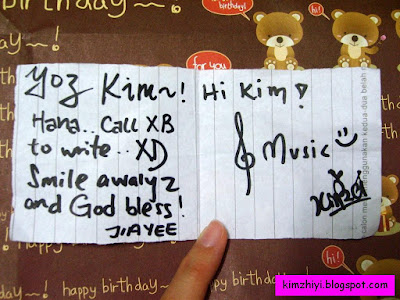 birthday!
hi!
birthday ~!
for you
Yoz Kim~!
Hana.. Call XB
to write.. XD
Smile awalyz
and God bless!
JIAYEE
Hi Kim!
Music
menggunakan kedua-dua belah
happy birthday~!
hi!
happy birthday~!
happy birthday
kimzhiyi.blogspot.com